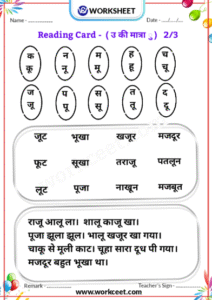 WORKSHEET
Name - Date - ..../..../....
Reading Card - ( उ की मात्रा ु ) 2/3
क न म ह च
कू नू मू हू चू
ज प स त द
जू पू सू तू दू
जूट भूखा खजूर मजदूर
फूट सूखा तराजू पतलून
लूट पूजा नाखून मजबूत
राजू आलू ला। शालू काजू खा।
पूजा झूला झूल। भालू खजूर खा गया।
चाकू से मूली काट। चूहा सारा दूध पी गया।
मजदूर बहुत भूखा था।
Remark - Teacher's Sign -
www.workceet.com